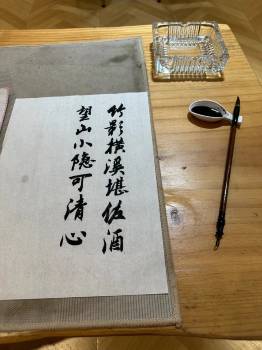 竹影横溪堪佐酒
望山小隐可清心